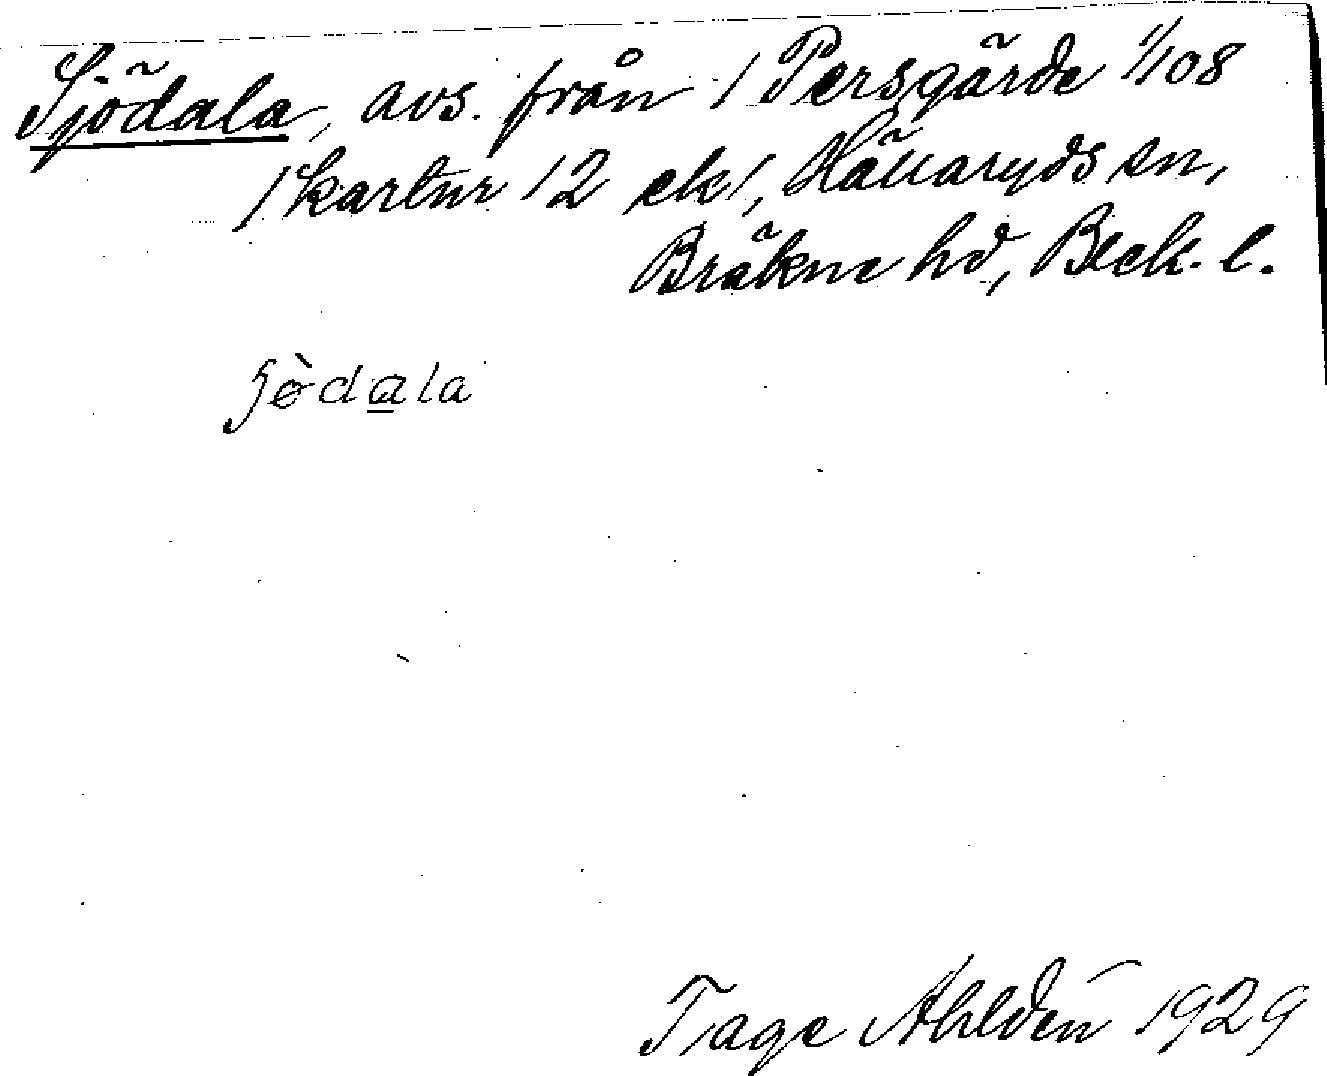 Sjödala, avs. från 1 Persgärde 1/108
/Kartur 12 ek/, Hällaryds sn,
Bräkne hd, Blek. l.
ʃödala
Tage Ahldén 1929